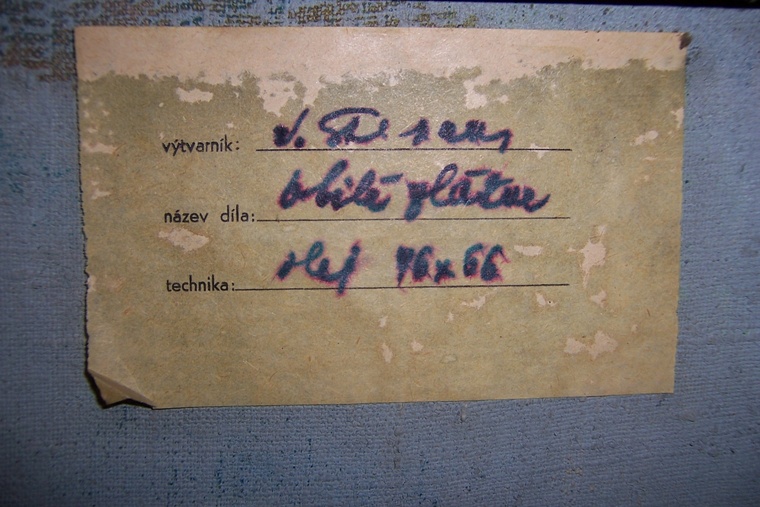 výtvarník: V.
název díla: bílé plátno
technika: olej 76x66